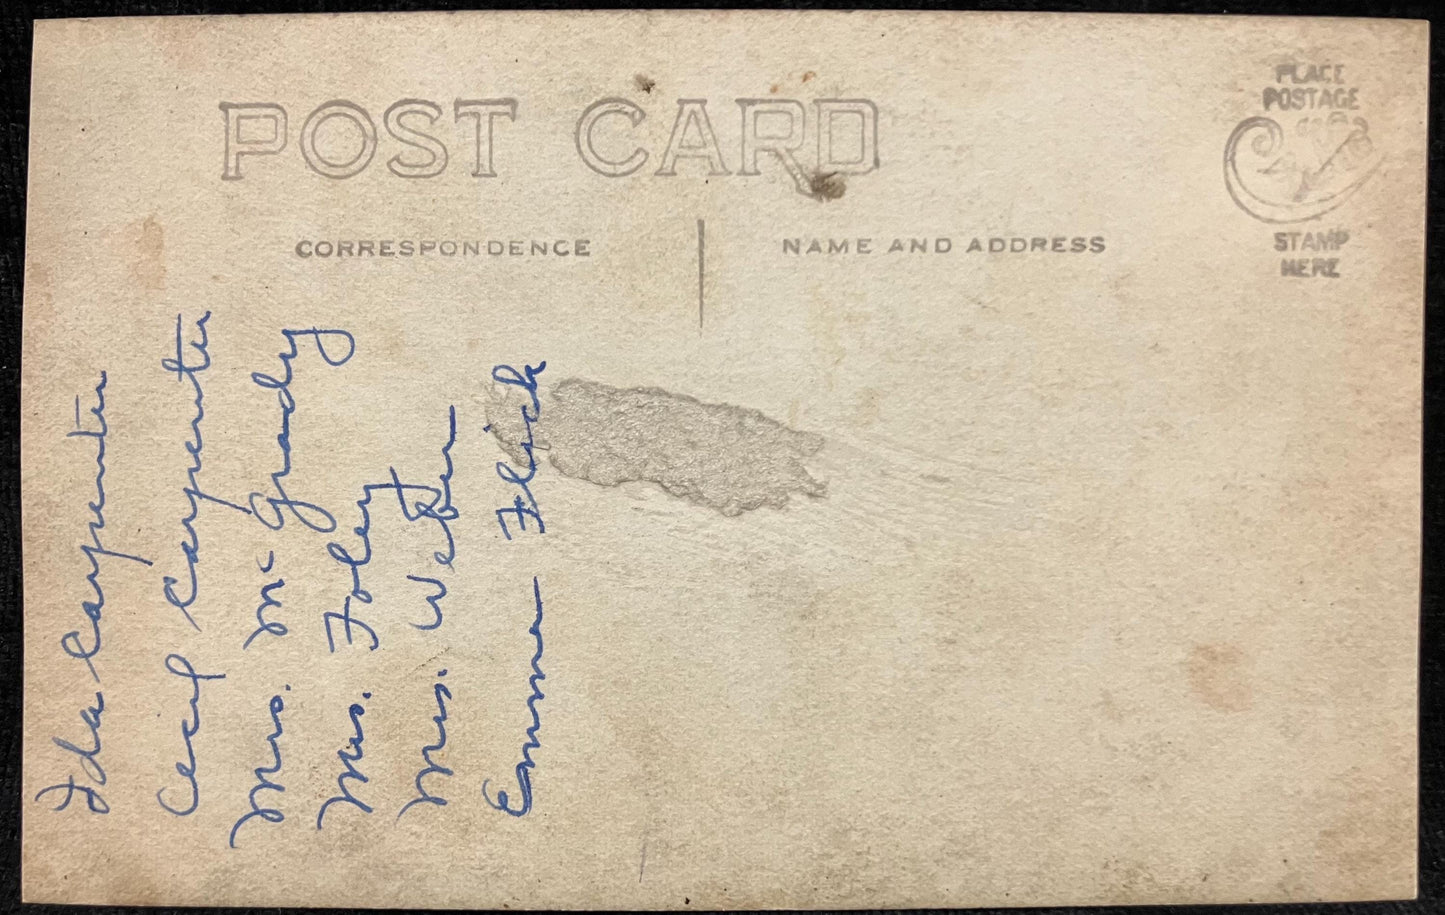 POST CARD
CORRESPONDENCE
NAME AND ADDRESS
PLACE
POSTAGE
STAMP
HERE
Ida Carpenter
Cecil Carpenter
Mrs. McGrady
Mrs. Foley
Mrs. Weber
Emma Flick